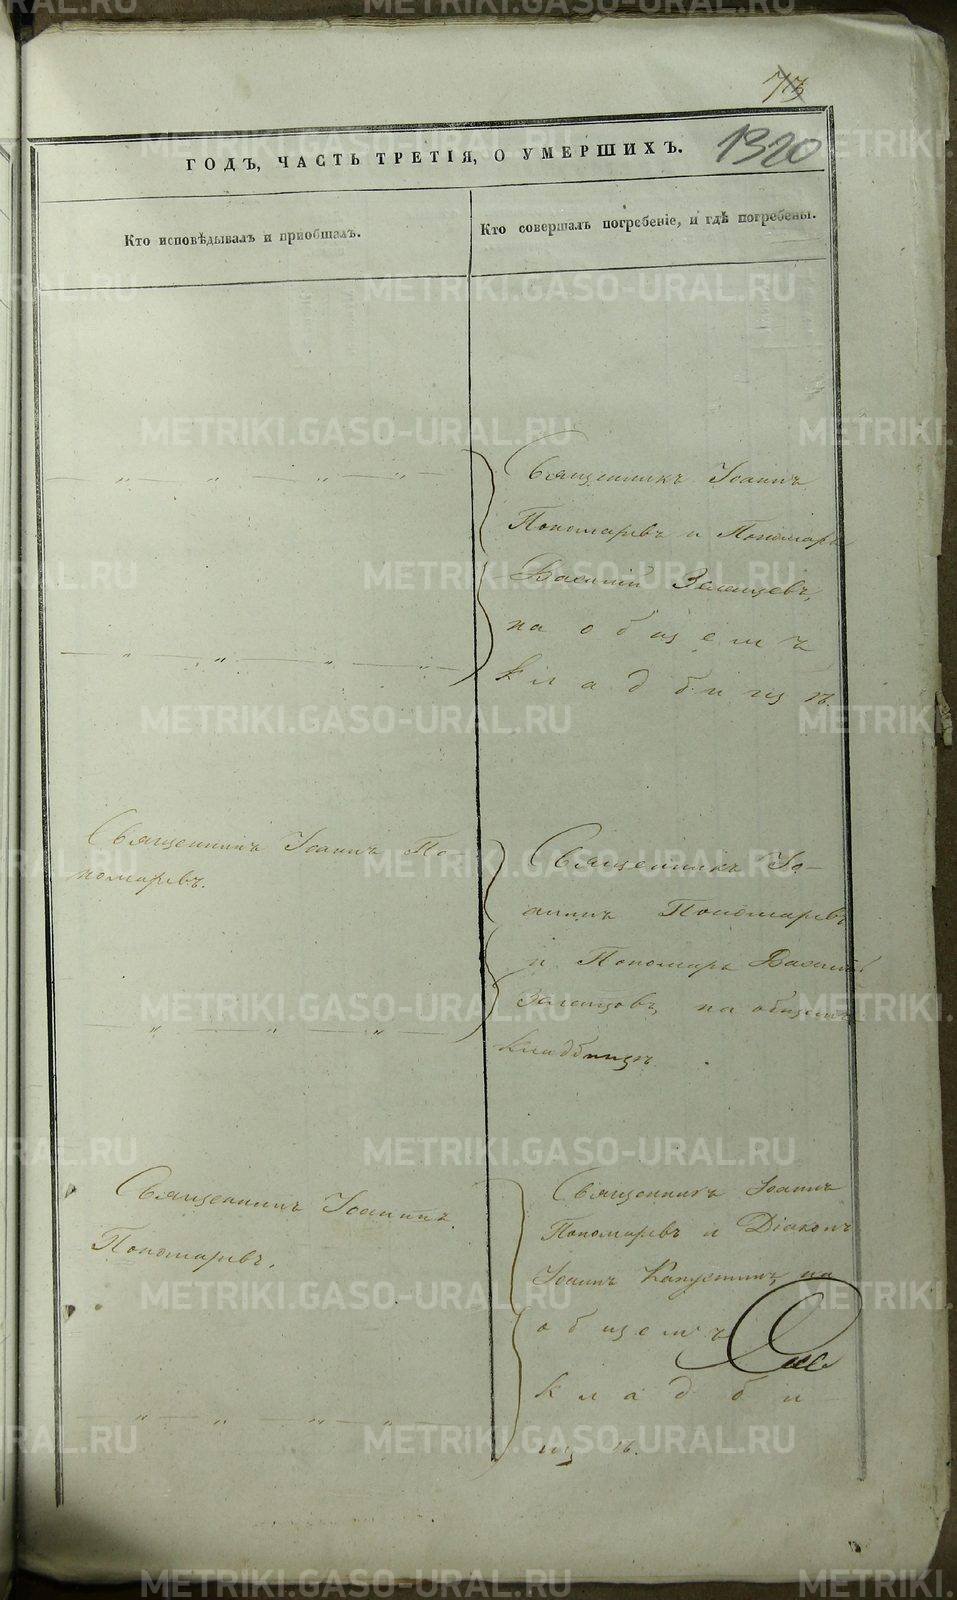 1320
ГОДЪ, ЧАСТЬ ТРЕТІЯ, О УМЕРШИХЪ.
Кто исповѣдывалъ и пріобщалъ.
Кто совершалъ погребеніе, и гдѣ погребены.
Священникъ Іоаннъ
Пономаревъ и Пономарь
Василій Зеленцовъ,
на общемъ
кладбищѣ.
Священникъ Іоаннъ По-
номаревъ.
Священникъ Іо-
аннъ Пономаревъ
и Пономарь Василій
Зеленцовъ, на общемъ
кладбищѣ.
Священникъ Іоаннъ
Пономаревъ.
Священникъ Іоаннъ
Пономаревъ и Діаконъ
Іоаннъ Капустинъ, на
общемъ
кладби-
щѣ.
METRIKI.GASO-URAL.RU